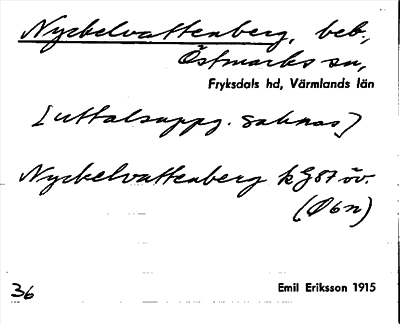 Nyckelvattenberg, beb.,
Östmarks sn,
Fryksdals hd, Värmlands län
[uttalsuppg. saknas]
Nyckelvattenberg kG87 öv.
(Öbn)
36
Emil Eriksson 1915